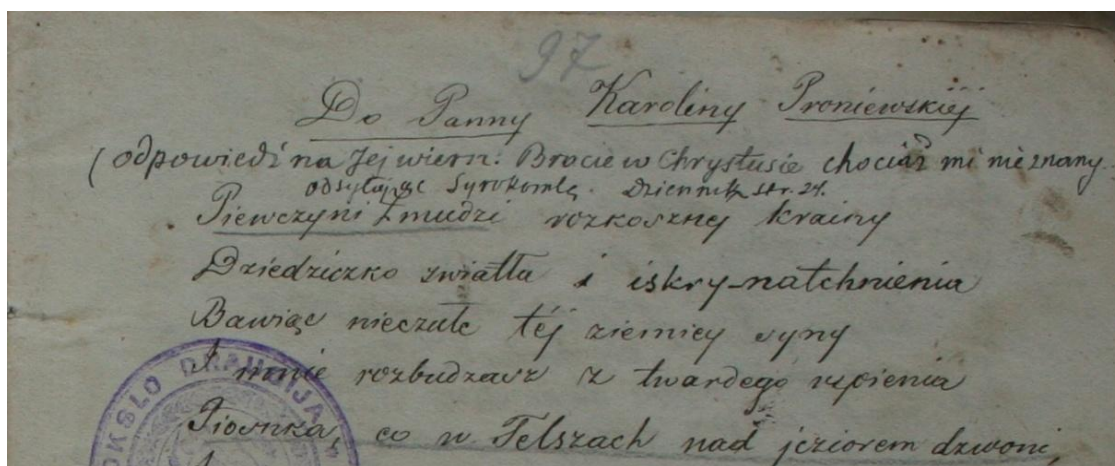 97
Do Panny Karoliny Proniewskiéj
(odpowiedź na Jej wiersz: Bracie w Chrystusie chociaż mi nieznany
odsyłając Syrokomlę. Dziennik str. 24.
Piewczyni Żmudzi rozkosznej krainy
Dziedziczko światła i iskry natchnienia
Bawiąc nieczułe téj ziemicy syny
I mnie rozbudzasz z twardego uśpienia
Piosnka, co w Telszach nad jeziorem dzwoni,
OKSLO DRAUGIJA